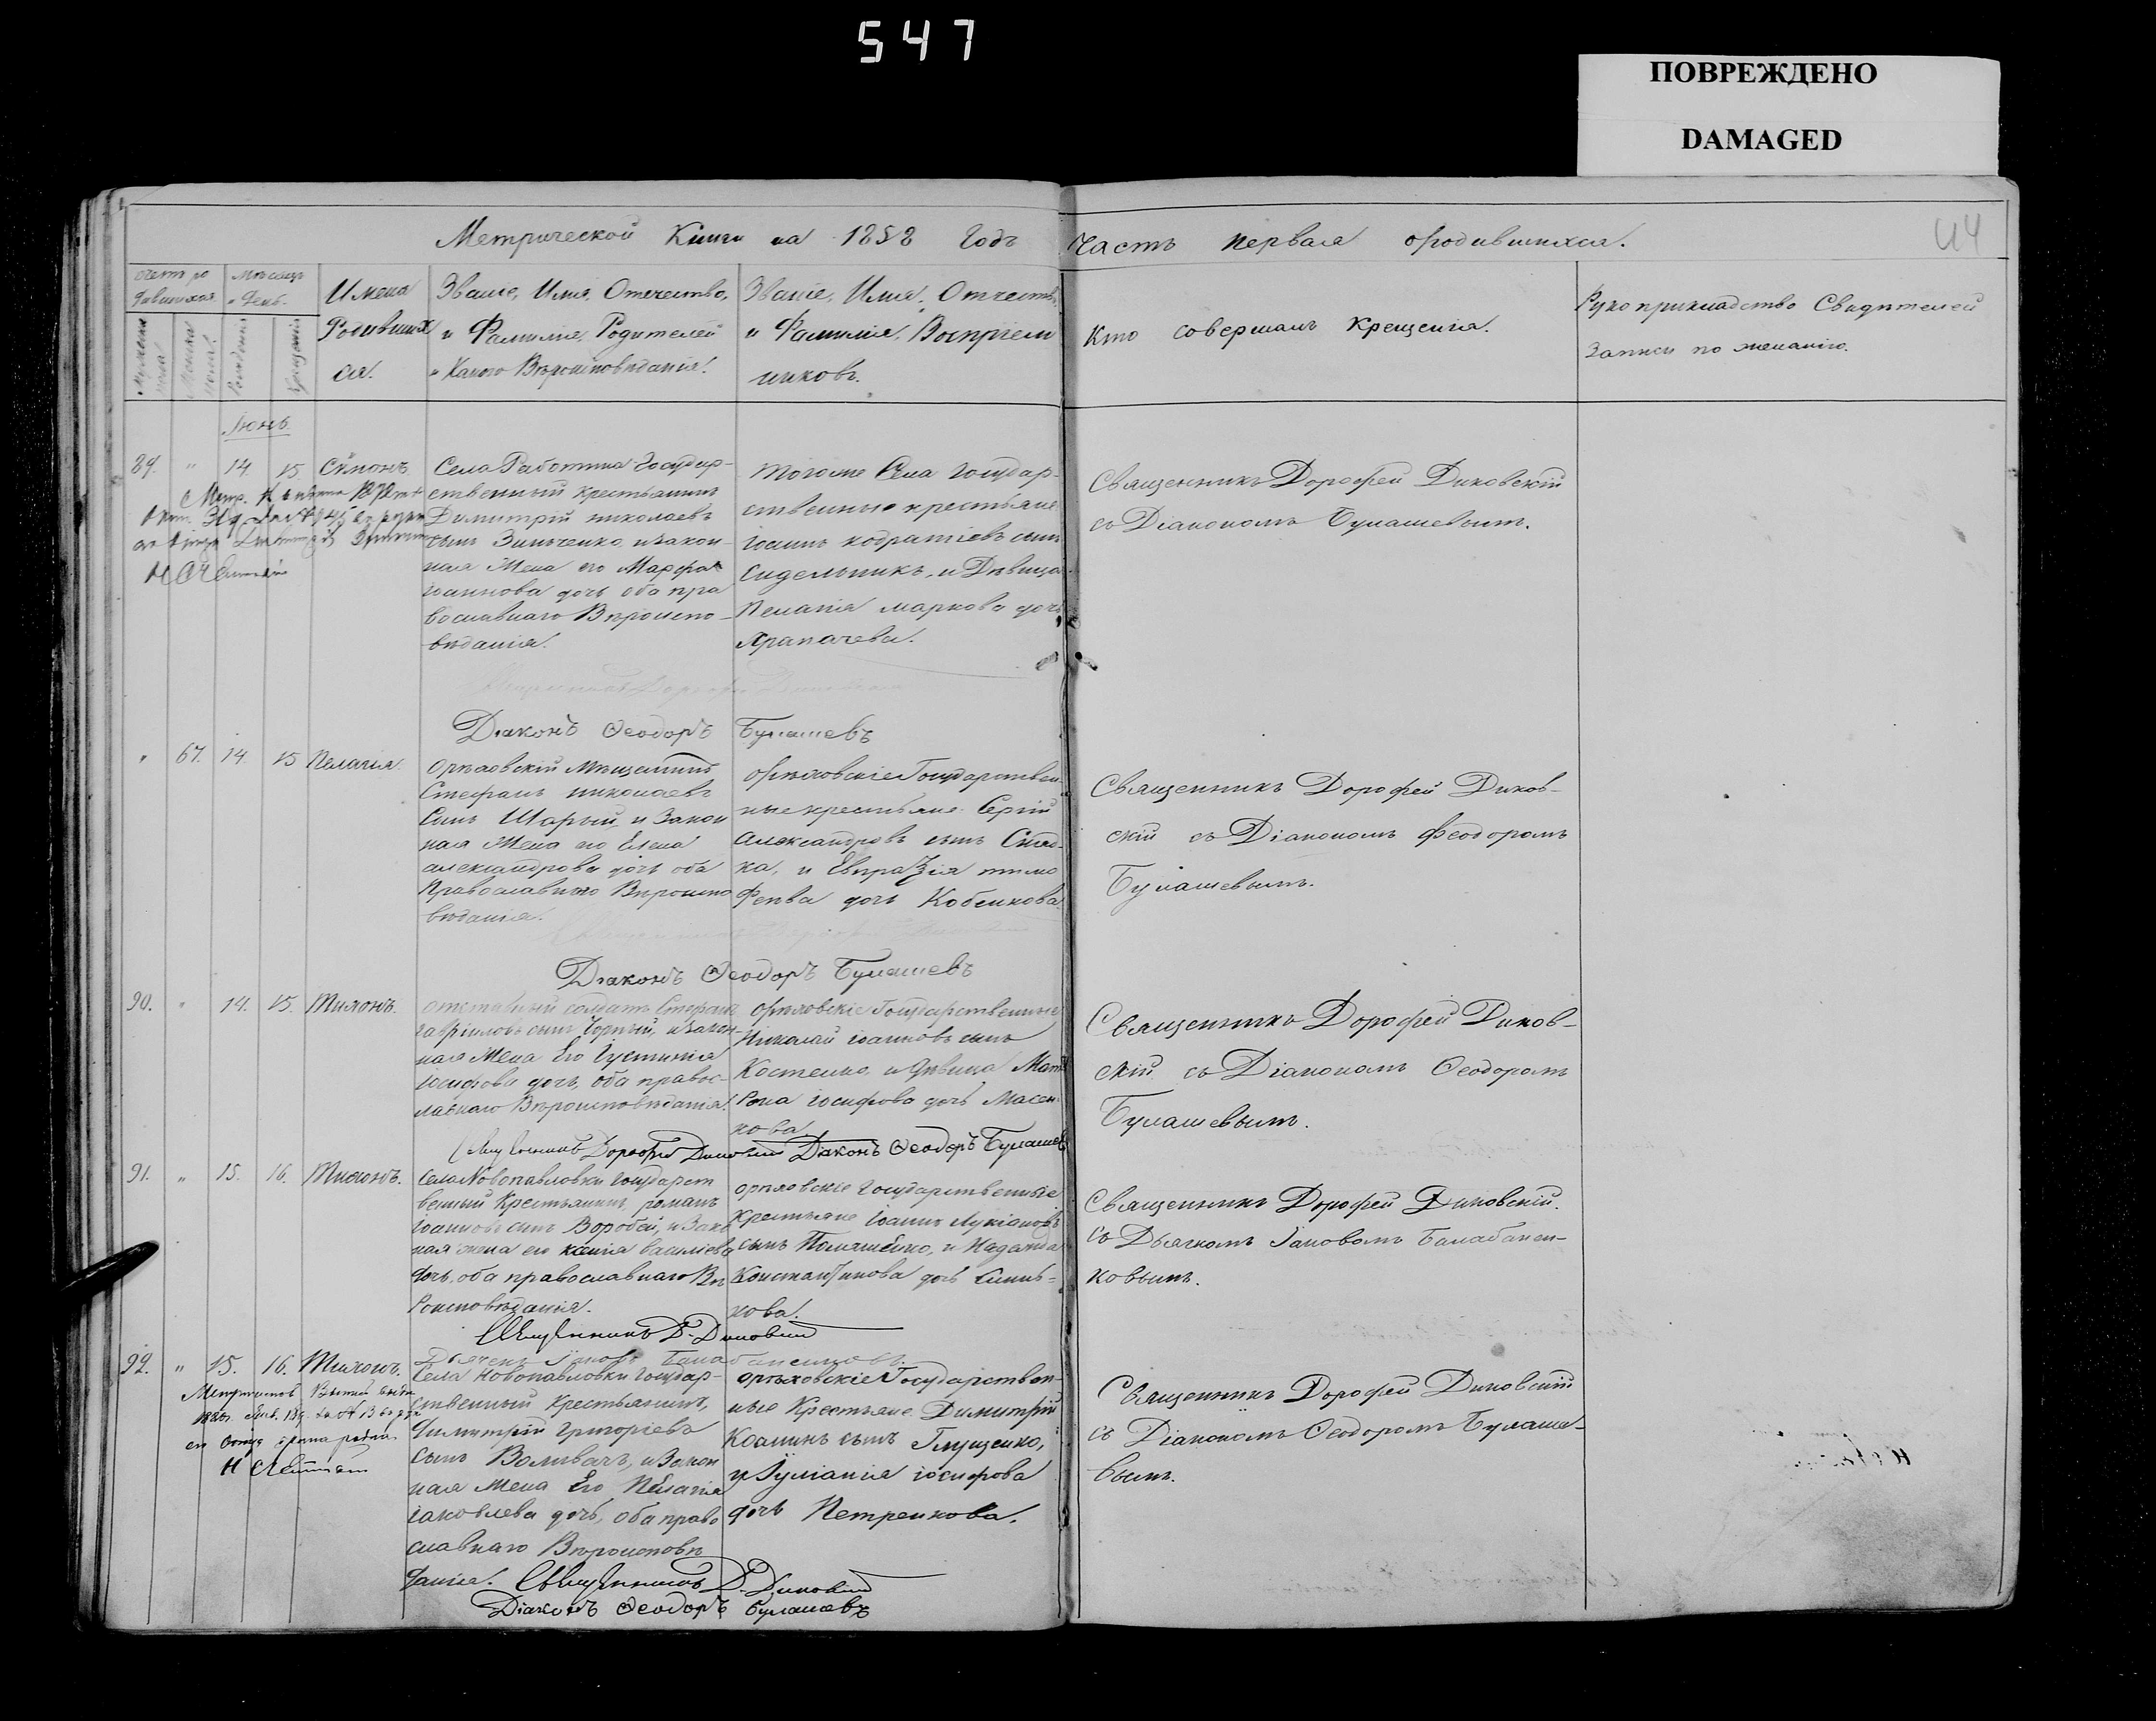 547
ПОВРЕЖДЕНО
DAMAGED
Метрической Книги на 1858 Годъ Часть первая ородившихся.
44
Счетъ ро
дившихся
Мѣсяцъ
и День.
Имена
Родивших
ся.
Званіе, Имя, Отечество,
и Фамилія, Родителей
и Какого Вѣроисповѣданія.
Званіе, Имя, Отечество,
и Фамилія, Воспріем
никовъ.
Кто совершалъ Крещенія.
Рукоприкладство Свидѣтелей
Записи по желанію.
Мужеска
пола
Женска
пола
Рожденія
Крещенія
Іюнь.
89. " 14. 15 Сѵмонъ
Села Работина Государ-
ственный крестьянинъ
Димитрій николаевъ
сынъ Зинченко, и закон-
ная Жена его Марфа
іоаннова дочь оба пра
вославнаго Вѣроиспо-
вѣданія.
тогоже Села Государ-
ственные крестьяне
іоаннъ кодратіевъ сынъ
Сидельникъ, и Дѣвица
Пелагія маркова дочь
Храпачева.
Священникъ Дорофей Диковскій
съ Діакономъ Булашевымъ.
Діаконъ Ѳеодоръ Булашевъ
" 67. 14. 15 Пелагія.
Орѣховскій Мѣщанинъ
Стефанъ николаевъ
Сынъ Шарый, и Закон
ная Жена его Елена
александрова дочь оба
Православнаго Вѣроиспо
вѣданія.
орѣховскіе Государствен
ные крестьяне Сергій
Александровъ сынъ
ка, и Евпраѯія тимо
феева дочь Кобенкова.
Священникъ Дорофей Диков-
скій съ Діакономъ Феодоромъ
Булашевымъ.
Діаконъ Ѳеодоръ Булашевъ
90. " 14. 15. Тихонъ.
отставный солдатъ Стефанъ
гавріиловъ сынъ Чорный, и закон-
ная Жена Его Іустинія
іосифова дочь, оба правос-
лавнаго Вѣроисповѣданія.
орѣховскіе Государственные
Николай іоанновъ сынъ
Костенко, и дѣвица Мат
рона іосифова дочь Масен
кова
Священникъ Дорофей Диков-
скій съ Діакономъ Ѳеодоромъ
Булашевымъ.
Священникъ Дорофей Диковскій Діаконъ Ѳеодоръ Булашевъ
91. " 15. 16. Тихонъ.
Села Новопавловки Государст
венный Крестьянинъ, романъ
іоанновъ сынъ Воробей, и Зако
ная жена его ксенія василіева
дочь, оба православнаго Вѣ
роисповѣданія.
орѣховскіе Государственные
крестьяне іоаннъ Лукіановъ
сынъ, и Надежда
Константинова дочь
кова.
Священникъ Дорофей Диковскій.
съ Дьячкомъ Іаковомъ Балабанен-
ковымъ.
Священникъ Д. Диковскій
Дьячекъ Іаковъ Балабаненковъ.
92. " 15. 16. Тихонъ.
Села Новопавловки Государ-
ственный Крестьянинъ,
димитрій Григоріевъ
сынъ Воливачъ, и Закон
ная Жена Его Пелагія
іаковлева дочь, оба право
славнаго Вѣроисповѣ
данія.
орѣховскіе Государствен-
ные Крестьяне Димитрій
Іоаннъ сынъ Глущенко,
и Іуліанія іосифова
дочь Петренкова.
Священникъ Дорофей Диковскій
съ Діакономъ Ѳеодоромъ Булаше-
вымъ.
Священникъ Д. Диковскій
Діаконъ Ѳеодоръ Булашевъ